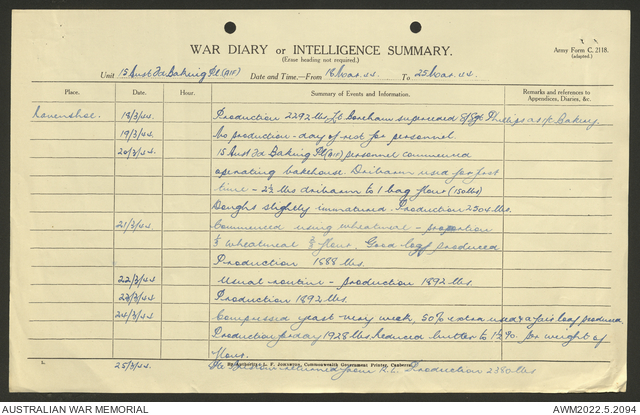 WAR DIARY or INTELLIGENCE SUMMARY.
(Erase heading not required.)
Army Form C. 2118.
(adapted.)
Unit 15 Aust Fd Baking Pl (AIF) Date and Time—From 18 Mar. 44 To 25 Mar. 44
Place. Date. Hour. Summary of Events and Information. Remarks and references to
Appendices, Diaries, &c.
Ravenshoe. 18/3/44. Production 2292 lbs. Lt Boreham superseded S/Sgt Phillips as i/c Bakery
19/3/44. No production - day of rest for personnel
20/3/44. 15 Aust Fd Baking Pl (AIF) personnel commenced
operating bakehouse. used for first
time - 2½ lbs to 1 bag flour (150 lbs)
Doughs slightly immatured. Production 2304 lbs.
21/3/44. Commenced using wheatmeal - proportion
⅓ wheatmeal ⅔ flour. Good loaf produced
Production 1888 lbs
22/3/44. Usual routine - production 1892 lbs.
23/3/44. Production 1892 lbs.
24/3/44. Compressed yeast very weak, 50% extra used & a fair loaf produced.
Production for day 1928 lbs. Reduced butter to 1½% for weight of
flour.
L. F. Johnston, Commonwealth Government Printer, Canberra
25/3/44. Pte returned from Production 2380 lbs
AUSTRALIAN WAR MEMORIAL
AWM2022.5.2094